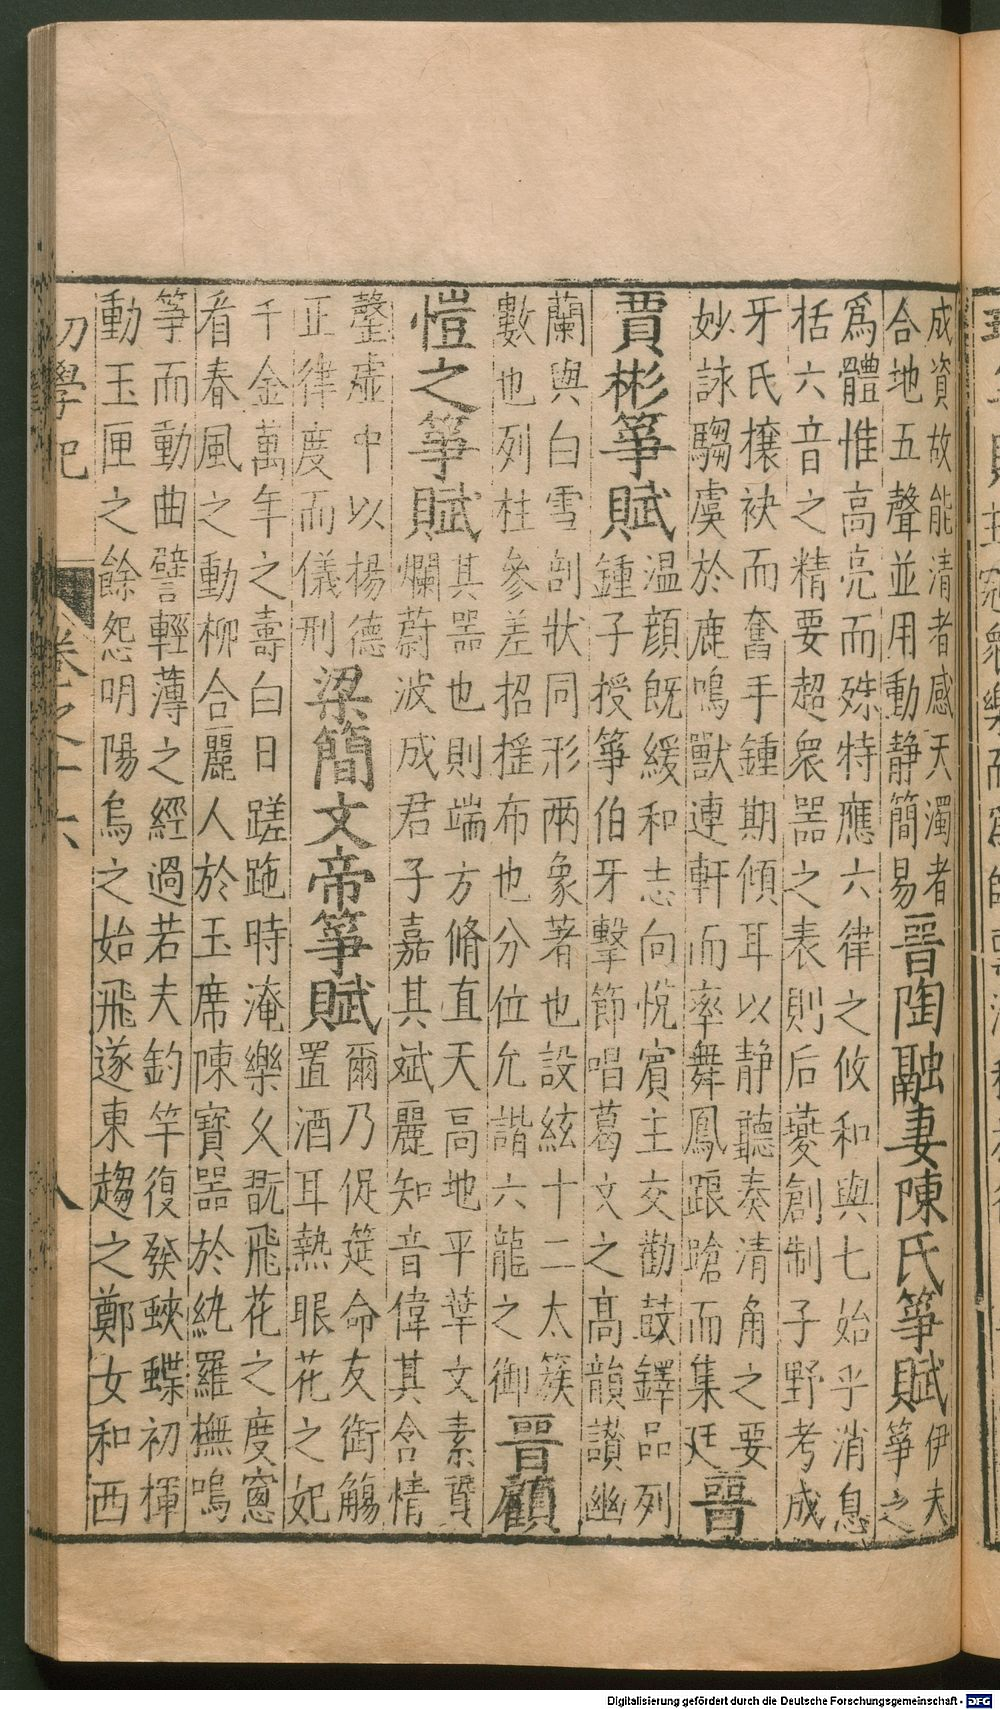 成資故能清者感天濁者
合地五聲並用動静簡易
晉陶融妻陳氏筝賦
伊夫
筝之
爲體惟高亮而殊特應六律之攸和與七始乎消息
括六音之精要超衆噐之表則后夔創制子野考成
牙氏攘袂而奮手鍾期傾耳以静聽奏清角之要
妙詠騶虞於鹿鳴獸連軒而率舞鳳踉蹌而集廷
晉
賈彬筝賦
温顔既緩和志向悅賓主交勸鼓鐸品列
鍾子授筝伯牙擊節唱葛文之高韻讃幽
蘭與白雪剖狀同形兩象著也設絃十二太簇
數也列柱參差招揺布也分位允諧六龍之御
晉顧
愷之筝賦
其噐也則端方脩直天高地平華文素質
爛蔚波成君子嘉其斌麗知音偉其含情
罄虛中以揚德
正律度而儀刑
梁簡文帝筝賦
爾乃促筵命友銜觴
置酒耳熱眼花之妃
千金萬年之壽白日蹉跎時淹樂久翫飛花之度窓
看春風之動柳合麗人於玉席陳寳噐於紈羅撫嗚
筝而動曲譬輕薄之經過若夫釣竿復發蛺蝶初揮
動玉匣之餘怨明陽烏之始飛遂東趨之鄭女和西
初學記
卷之十六
八
Digitalisierung gefördert durch die Deutsche Forschungsgemeinschaft - DFG